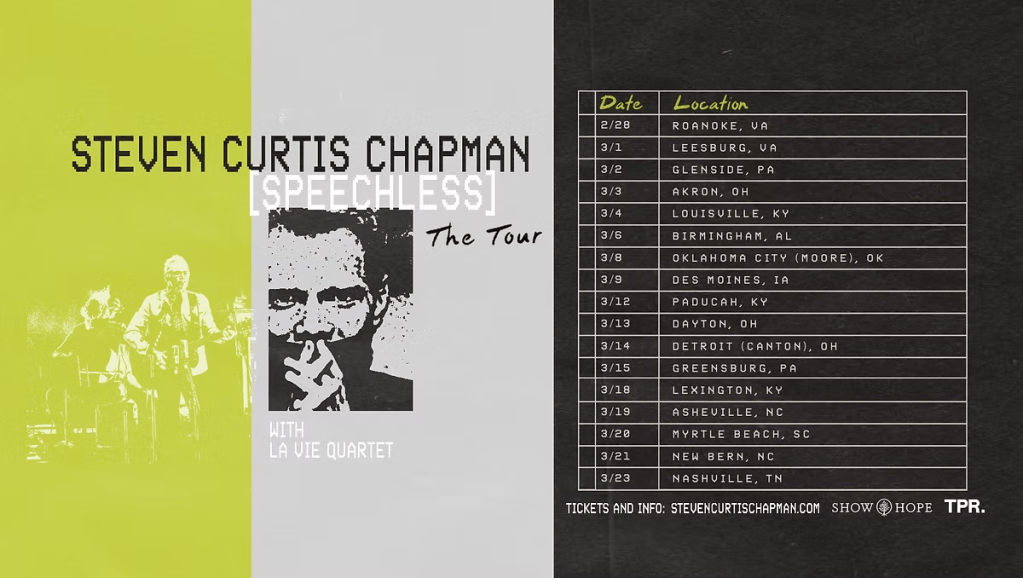 STEVEN CURTIS CHAPMAN
[SPEECHLESS]
The Tour
WITH
LA VIE QUARTET
Date Location
2/28 ROANOKE, VA
3/1 LEESBURG, VA
3/2 GLENSIDE, PA
3/3 AKRON, OH
3/4 LOUISVILLE, KY
3/6 BIRMINGHAM, AL
3/8 OKLAHOMA CITY (MOORE), OK
3/9 DES MOINES, IA
3/12 PADUCAH, KY
3/13 DAYTON, OH
3/14 DETROIT (CANTON), OH
3/15 GREENSBURG, PA
3/18 LEXINGTON, KY
3/19 ASHEVILLE, NC
3/20 MYRTLE BEACH, SC
3/21 NEW BERN, NC
3/23 NASHVILLE, TN
TICKETS AND INFO: STEVENCURTISCHAPMAN.COM SHOW HOPE TPR.